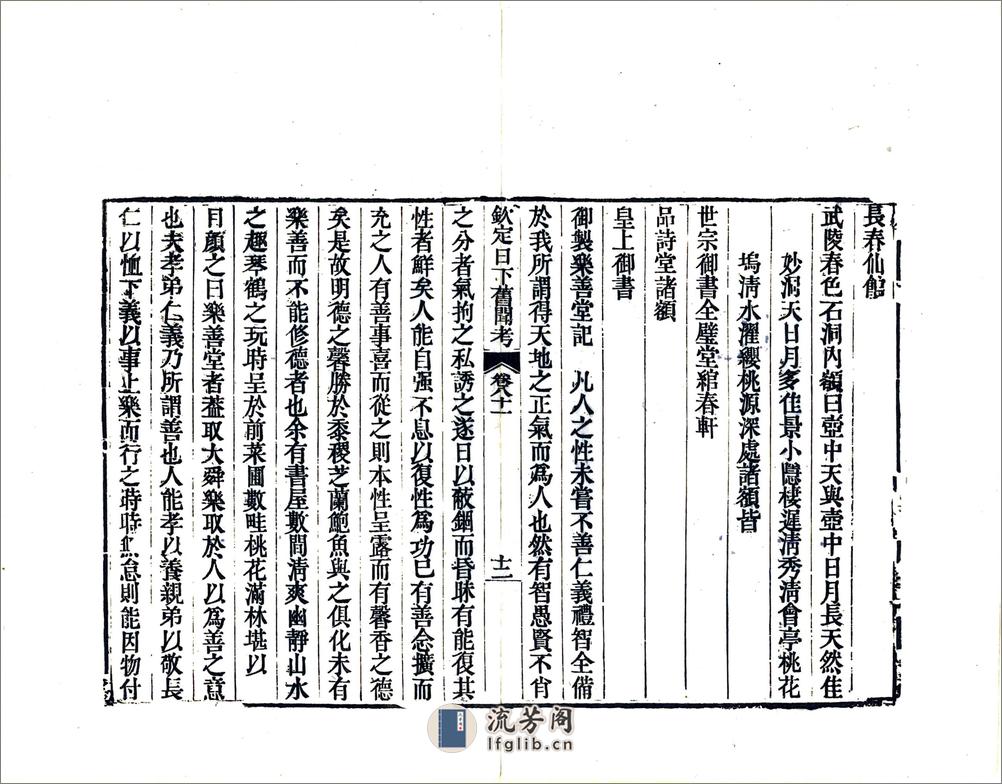 長春仙館
武陵春色石洞內額曰壺中天與壺中日月長天然佳
妙洞天日月多佳景小隱棲遲清秀清會亭桃花
塢清水濯纓桃源深處諸額皆
世宗御書全璧堂綰春軒
品詩堂諸額
皇上御書
御製樂善堂記 凡人之性未嘗不善仁義禮智全備
於我所謂得天地之正氣而爲人也然有智愚賢不肖
欽定日下舊聞考 卷八十一 十二
之分者氣拘之私誘之遂日以蔽錮而昏昧有能復其
性者鮮矣人能自强不息以復性爲功已有善念擴而
充之人有善事喜而從之則本性呈露而有馨香之德
矣是故明德之馨勝於黍稷芝蘭鮑魚與之俱化未有
樂善而不能修德者也余有書屋數間清爽幽靜山水
之趣琴鶴之玩時呈於前菜圃數畦桃花滿林堪以
目顏之曰樂善堂者蓋取大舜樂取於人以爲善之意
也夫孝弟仁義乃所謂善也人能孝以養親弟以敬長
仁以恤下義以事上樂而行之時時無怠則能因物付
流芳阁
lfglib.cn